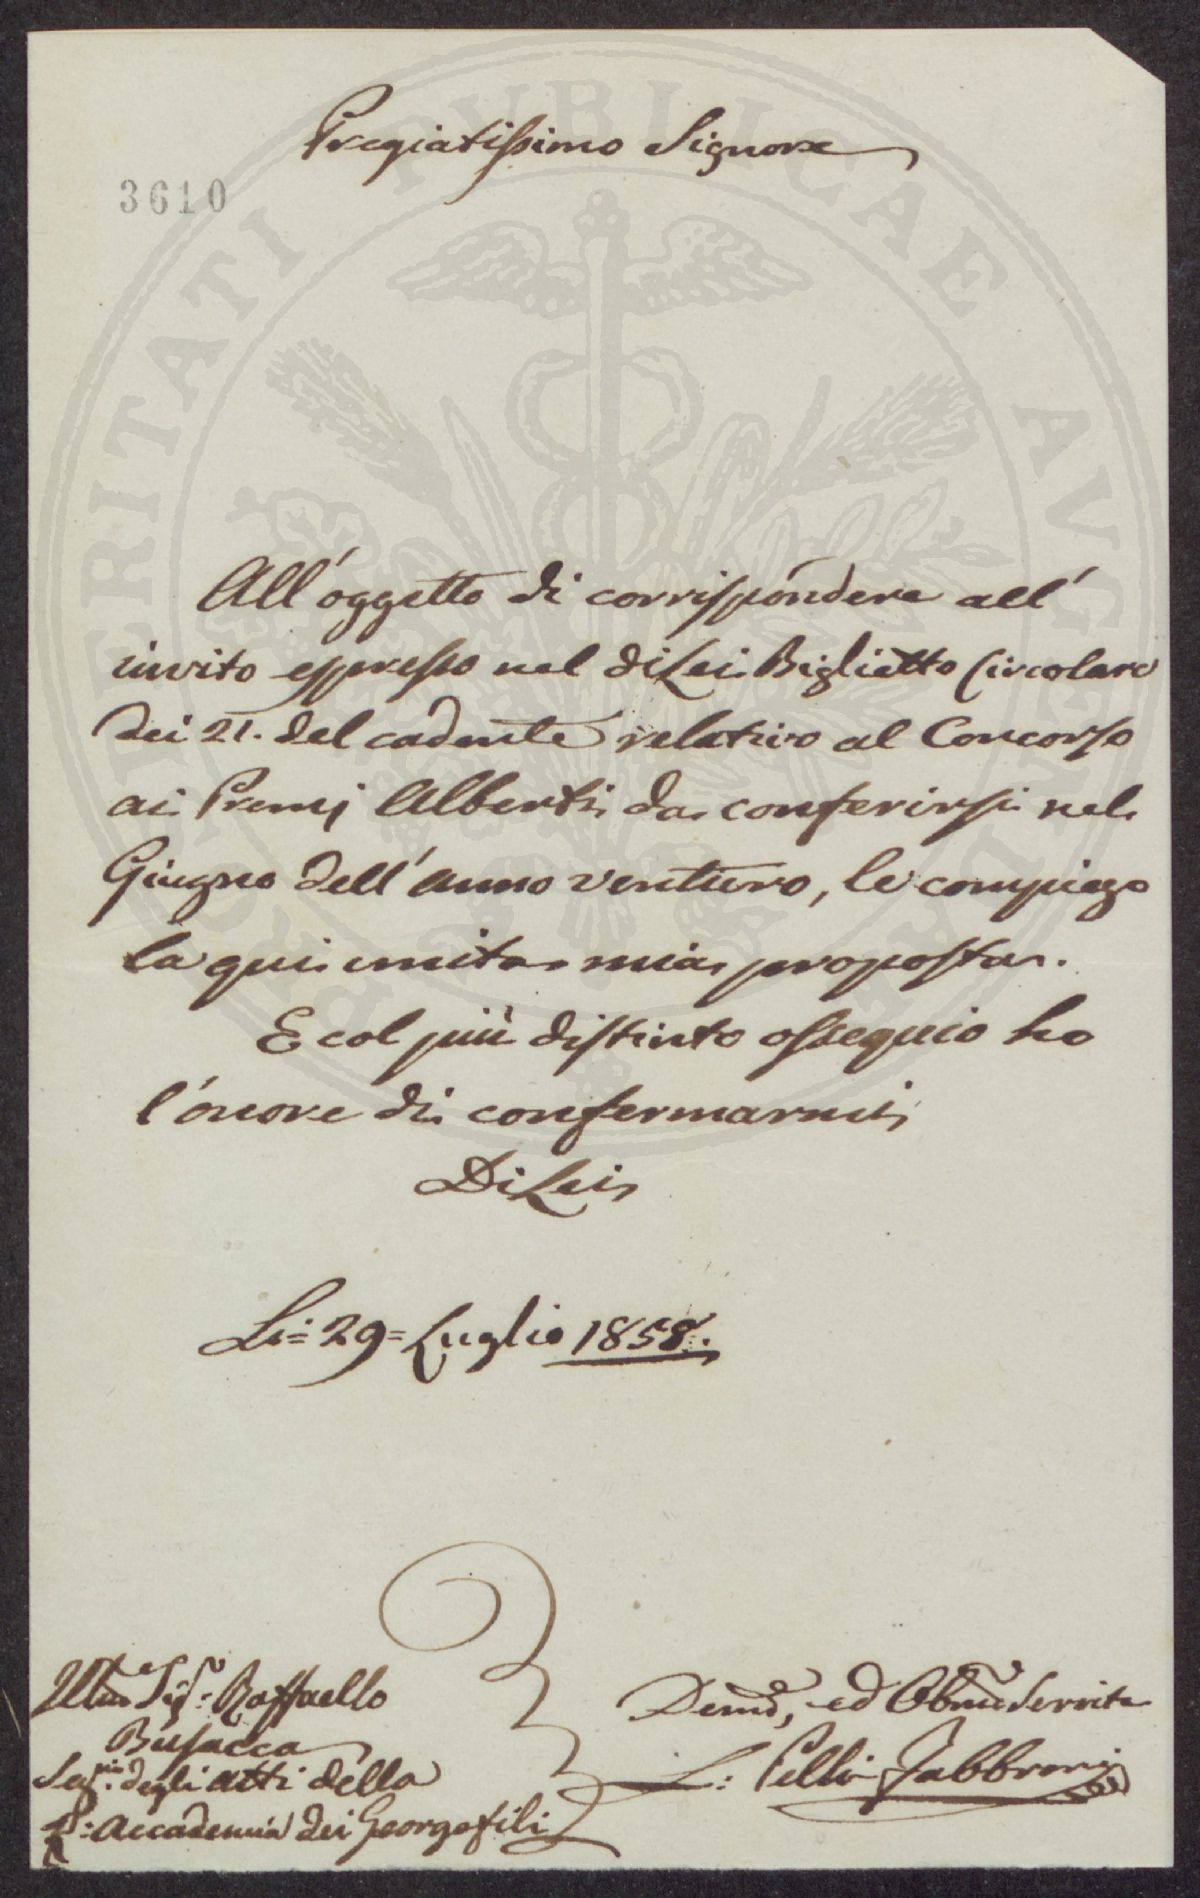 Pregiatissimo Signore
3610
PROSPERITATI PVBLICAE AVGENDAE
All'oggetto di corrispondere all'
invito espresso nel di Lei Biglietto Circolare
dei 21. del cadente relativo al Concorso
ai Premj Alberti da conferirsi nel
Giugno dell'anno venturo, le compiego
la qui unita mia proposta.
E col più distinto ossequio ho
l'onore di confermarmi
Di Lei
Li = 29 = Luglio 1858.
Illmo Sigr. Raffaello
Busacca
Segrio. degli atti della
R: Accademia dei Georgofili
Devmo, ed Obbmo Servite
L: Pelli Fabbroni